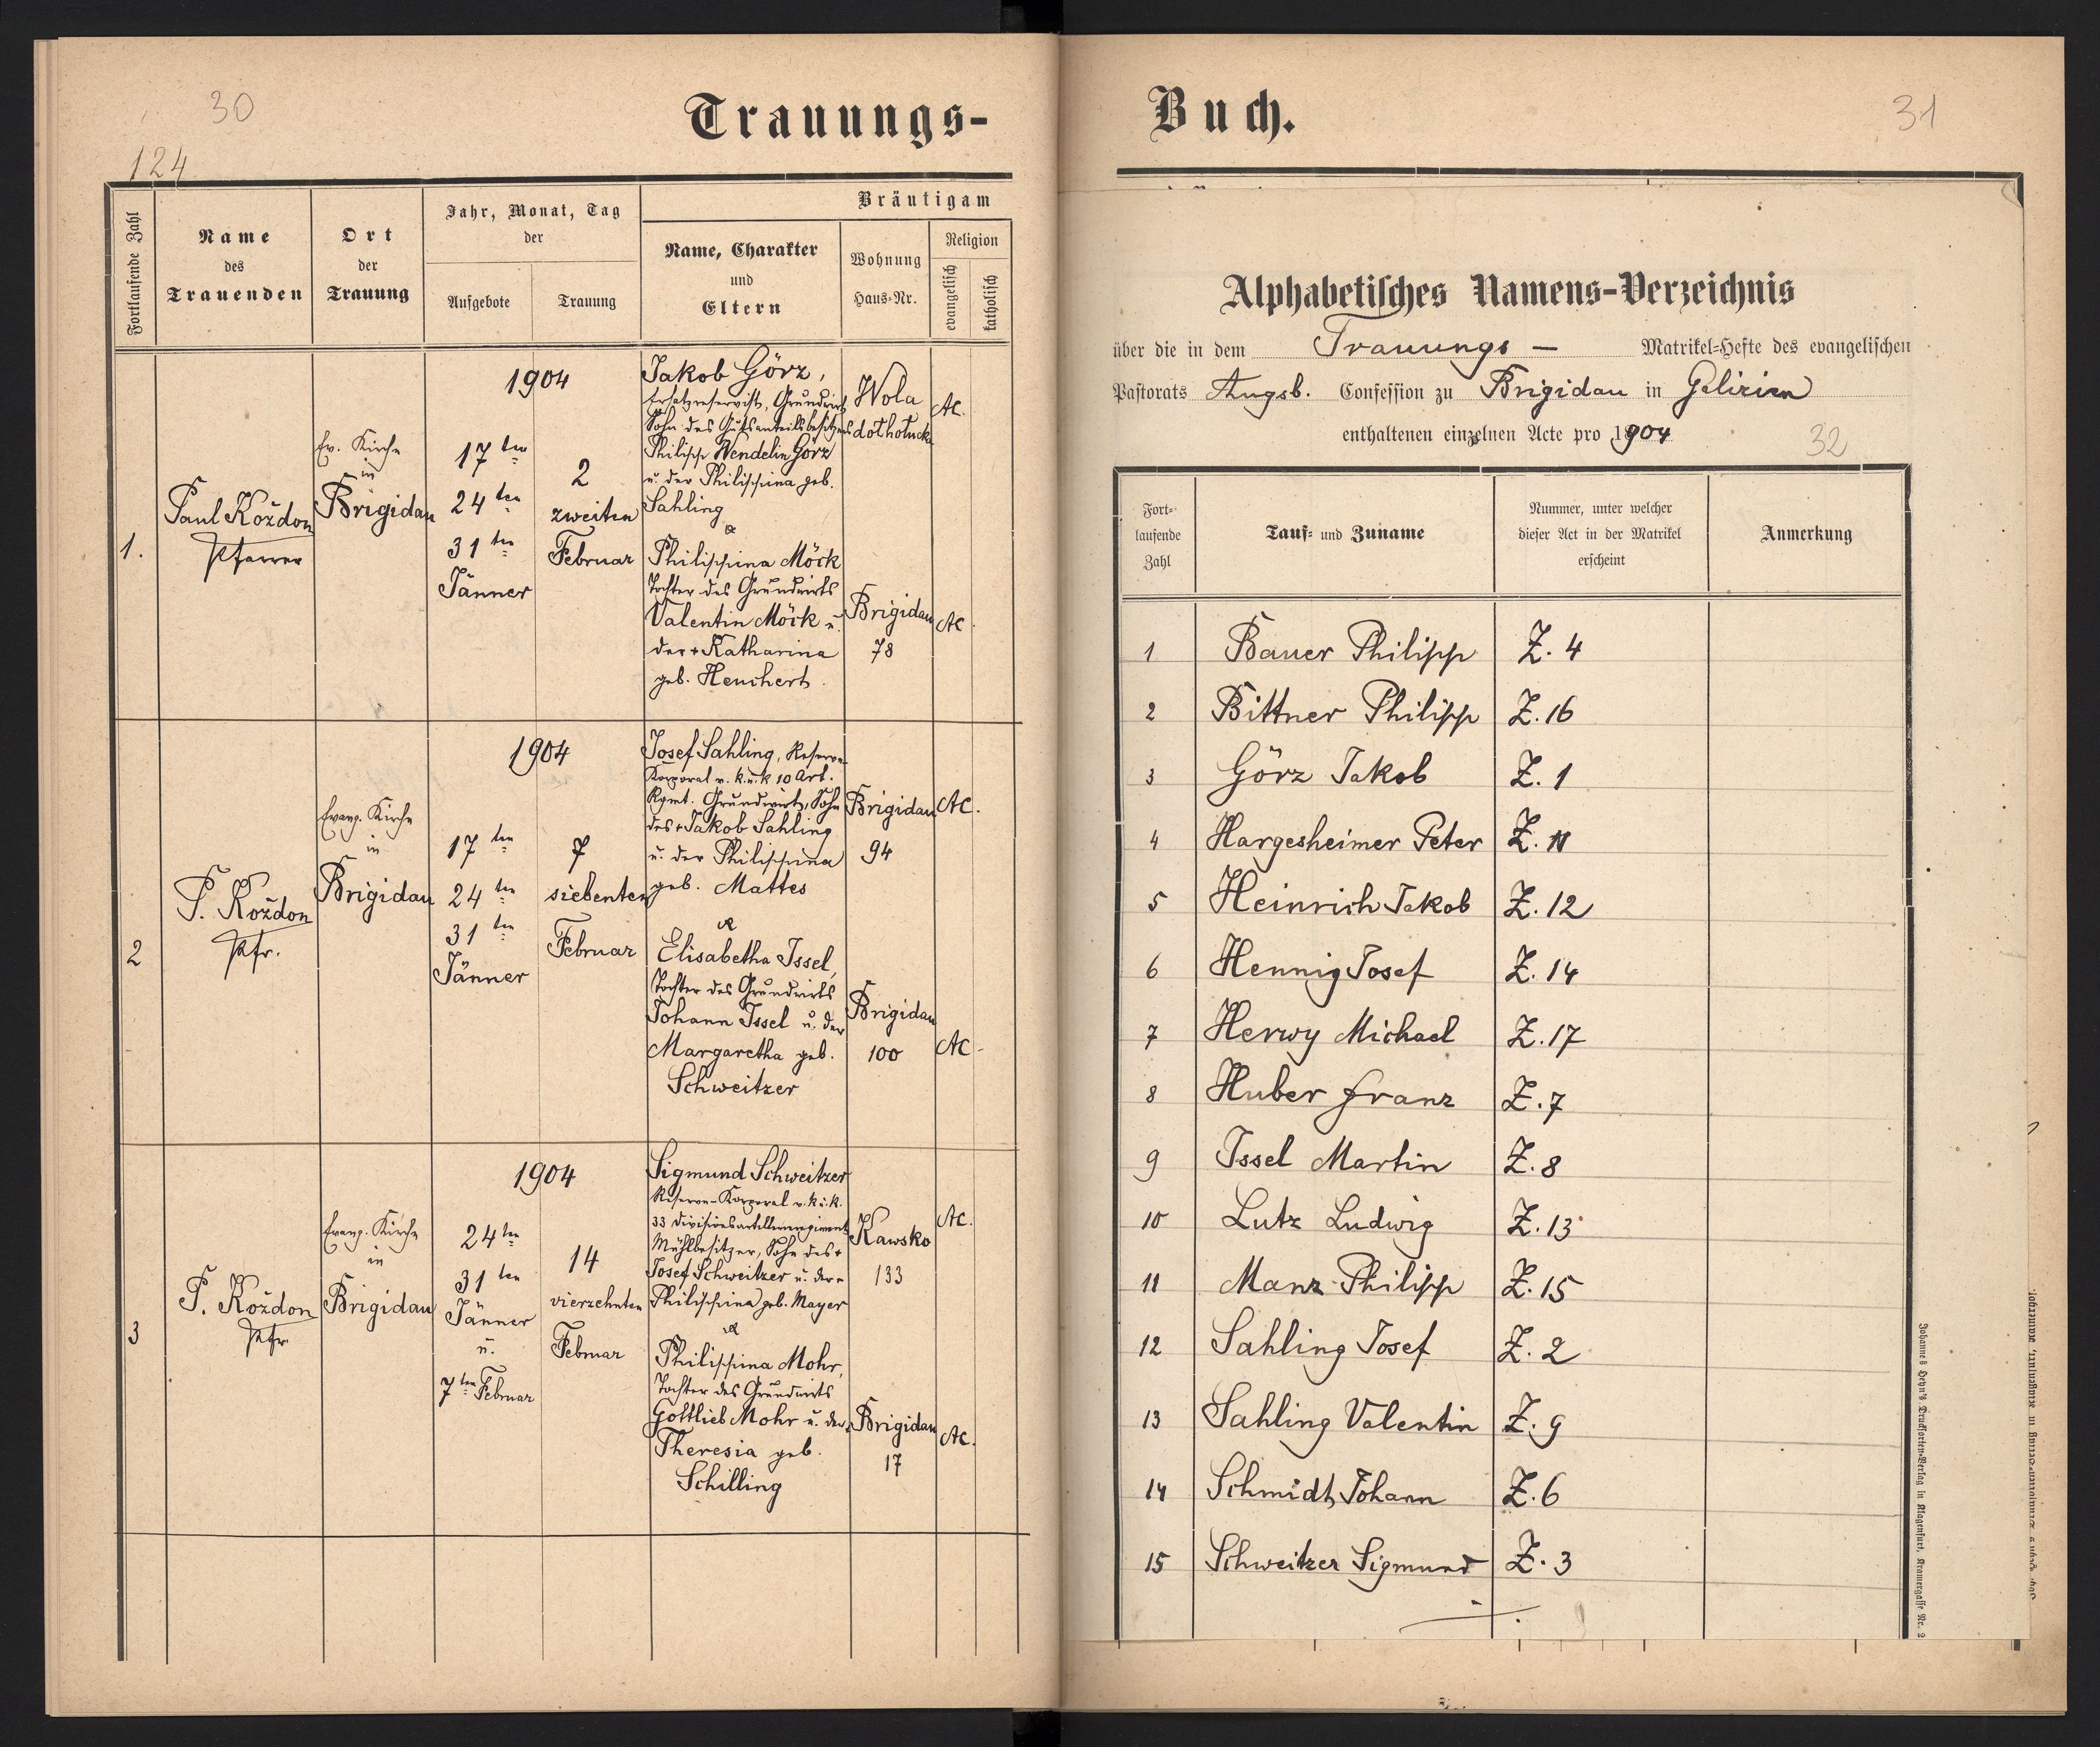 30
124
Trauungs-
Fortlaufende Zahl
Name
des
Trauenden
Ort
der
Trauung
Jahr, Monat, Tag
der
Aufgebote
Trauung
Bräutigam
Name, Charakter
und
Eltern
Wohnung
Haus-Nr.
Religion
evangelisch
katholisch
1.
Paul Kożdon
Pfarrer
Ev. Kirche
in
Brigidau
1904
17 ten
24 ten
31 ten
Jänner
2
zweiten
Februar
Jakob Görz,
Ersatzreservist, Grundwirt
Sohn des Gutsanteilsbesitzers
Philipp Wendelin Görz
u. der Philippina geb.
Sahling
&
Philippina Möck
Tochter des Grundwirts
Valentin Möck u.
der + Katharina
geb. Heuchert.
Wola
dothołucka
AC.
Brigidau
78
AC.
2
P. Kożdon
Pfr.
Evang. Kirche
in
Brigidau
1904
17 ten
24 ten
31 ten
Jänner
7
siebenten
Februar
Josef Sahling, Reserve-
Korporal v. k. u. k 10 Art.
Rgmt. Grundwirt, Sohn
des + Jakob Sahling
u. der Philippina
geb. Mattes
&
Elisabetha Issel,
Tochter des Grundwirts
Johann Issel u. der
Margaretha geb.
Schweitzer
Brigidau
94
AC.
Brigidau
100
AC.
3
P. Kożdon
Pfr.
Evang. Kirche
in
Brigidau
1904
24 ten
31 ten
Jänner
u.
7 ten Februar
14
vierzehnten
Februar
Sigmund Schweitzer
Reserve-Korporal v. k. u. k.
33 Divisionsartillerieregiment
Mühlbesitzer, Sohn des +
Josef Schweitzer u. der +
Philippina geb. Mayer
&
Philippina Mohr,
Tochter des Grundwirts
Gottlieb Mohr u. der
Theresia geb.
Schilling
Kawsko
133
AC.
Brigidau
17
AC.
Buch.
31
Alphabetisches Namens-Verzeichnis
über die in dem Trauungs — Matrikel-Hefte des evangelischen
Pastorats Augsb. Confession zu Brigidau in Galizien
enthaltenen einzelnen Acte pro 1904
32
Fort-
laufende
Zahl
Tauf- und Zuname
Nummer, unter welcher
dieser Act in der Matrikel
erscheint
Anmerkung
1 Bauer Philipp Z. 4
2 Bittner Philipp Z. 16
3 Görz Jakob Z. 1
4 Hargesheimer Peter Z. 11
5 Heinrich Jakob Z. 12
6 Hennig Josef Z. 14
7 Herwy Michael Z. 17
8 Huber Franz Z. 7
9 Issel Martin Z. 8
10 Lutz Ludwig Z. 13
11 Manz Philipp Z. 15
12 Sahling Josef Z. 2
13 Sahling Valentin Z. 9
14 Schmidt Johann Z. 6
15 Schweitzer Sigmund Z. 3
Johannes Heyn's Drucksorten-Verlag in Klagenfurt, Kramergasse Nr. 2